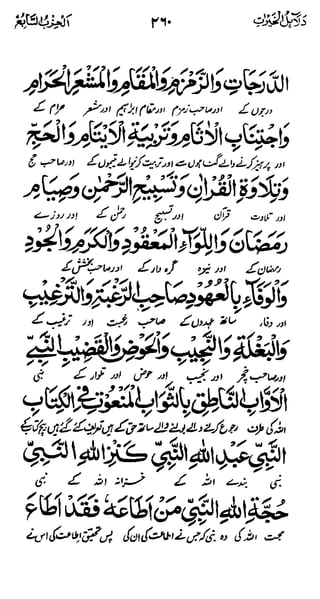 دلائل الخیرات ۲۶۰ الحزب السابع
الدَّرَجَاتِ وَالزَّمْزَمِ وَالْمَقَامِ وَالْمَشْعَرِ الْحَرَامِ
درجوں کے اور صاحب زمزم اور مقام ابراہیم اور مشعر حرام کے
وَاجْتِنَابِ الْاٰثَامِ وَتَرْبِيَةِ الْاَيْتَامِ وَالْحَجِّ
اور پرہیز کرنے والے گناہوں سے اور تربیت کرنیوالے یتیموں کے اور صاحب حج
وَتِلَاوَةِ الْقُرْاٰنِ وَتَسْبِيْحِ الرَّحْمٰنِ وَصِيَامِ
اور تلاوت قرآن اور تسبیح رحمٰن کے اور روزے
رَمَضَانَ وَاللِّوَآءِ الْمَعْقُوْدِ وَالْكَرَمِ وَالْجُوْدِ
رمضان کے اور نیزہ گرہ دار کے اور صاحب بخشش کے
وَالْوَفَآءِ بِالْعُهُوْدِ صَاحِبِ الرَّغْبَةِ وَالتَّرْغِيْبِ
اور وفاء ساتھ عہدوں کے صاحب رغبت اور ترغیب کے
وَالْبَغْلَةِ وَالنَّجِيْبِ وَالْحَوْضِ وَالْقَضِيْبِ النَّبِيِّ
اور صاحب خچر اور نجیب اور حوض اور تلوار کے نبی
الْاَوَّابِ النَّاطِقِ بِالثَّوَابِ الْمَنْعُوْتِ فِي الْكِتَابِ
اللہ کی طرف رجوع کرنے والے بولنے والے ساتھ حق کے تعریف کئے گئے ہیں بیچ کتاب کے
النَّبِيِّ عَبْدِ اللهِ النَّبِيِّ كَنْزِ اللهِ النَّبِيِّ
نبی بندے اللہ کے نبی خزانہ اللہ کے نبی
حُجَّةِ اللهِ النَّبِيِّ مَنْ اَطَاعَهٗ فَقَدْ اَطَاعَ
حجت اللہ کی وہ نبی کہ جس نے اطاعت کی ان کی پس تحقیق اطاعت کی اس نے